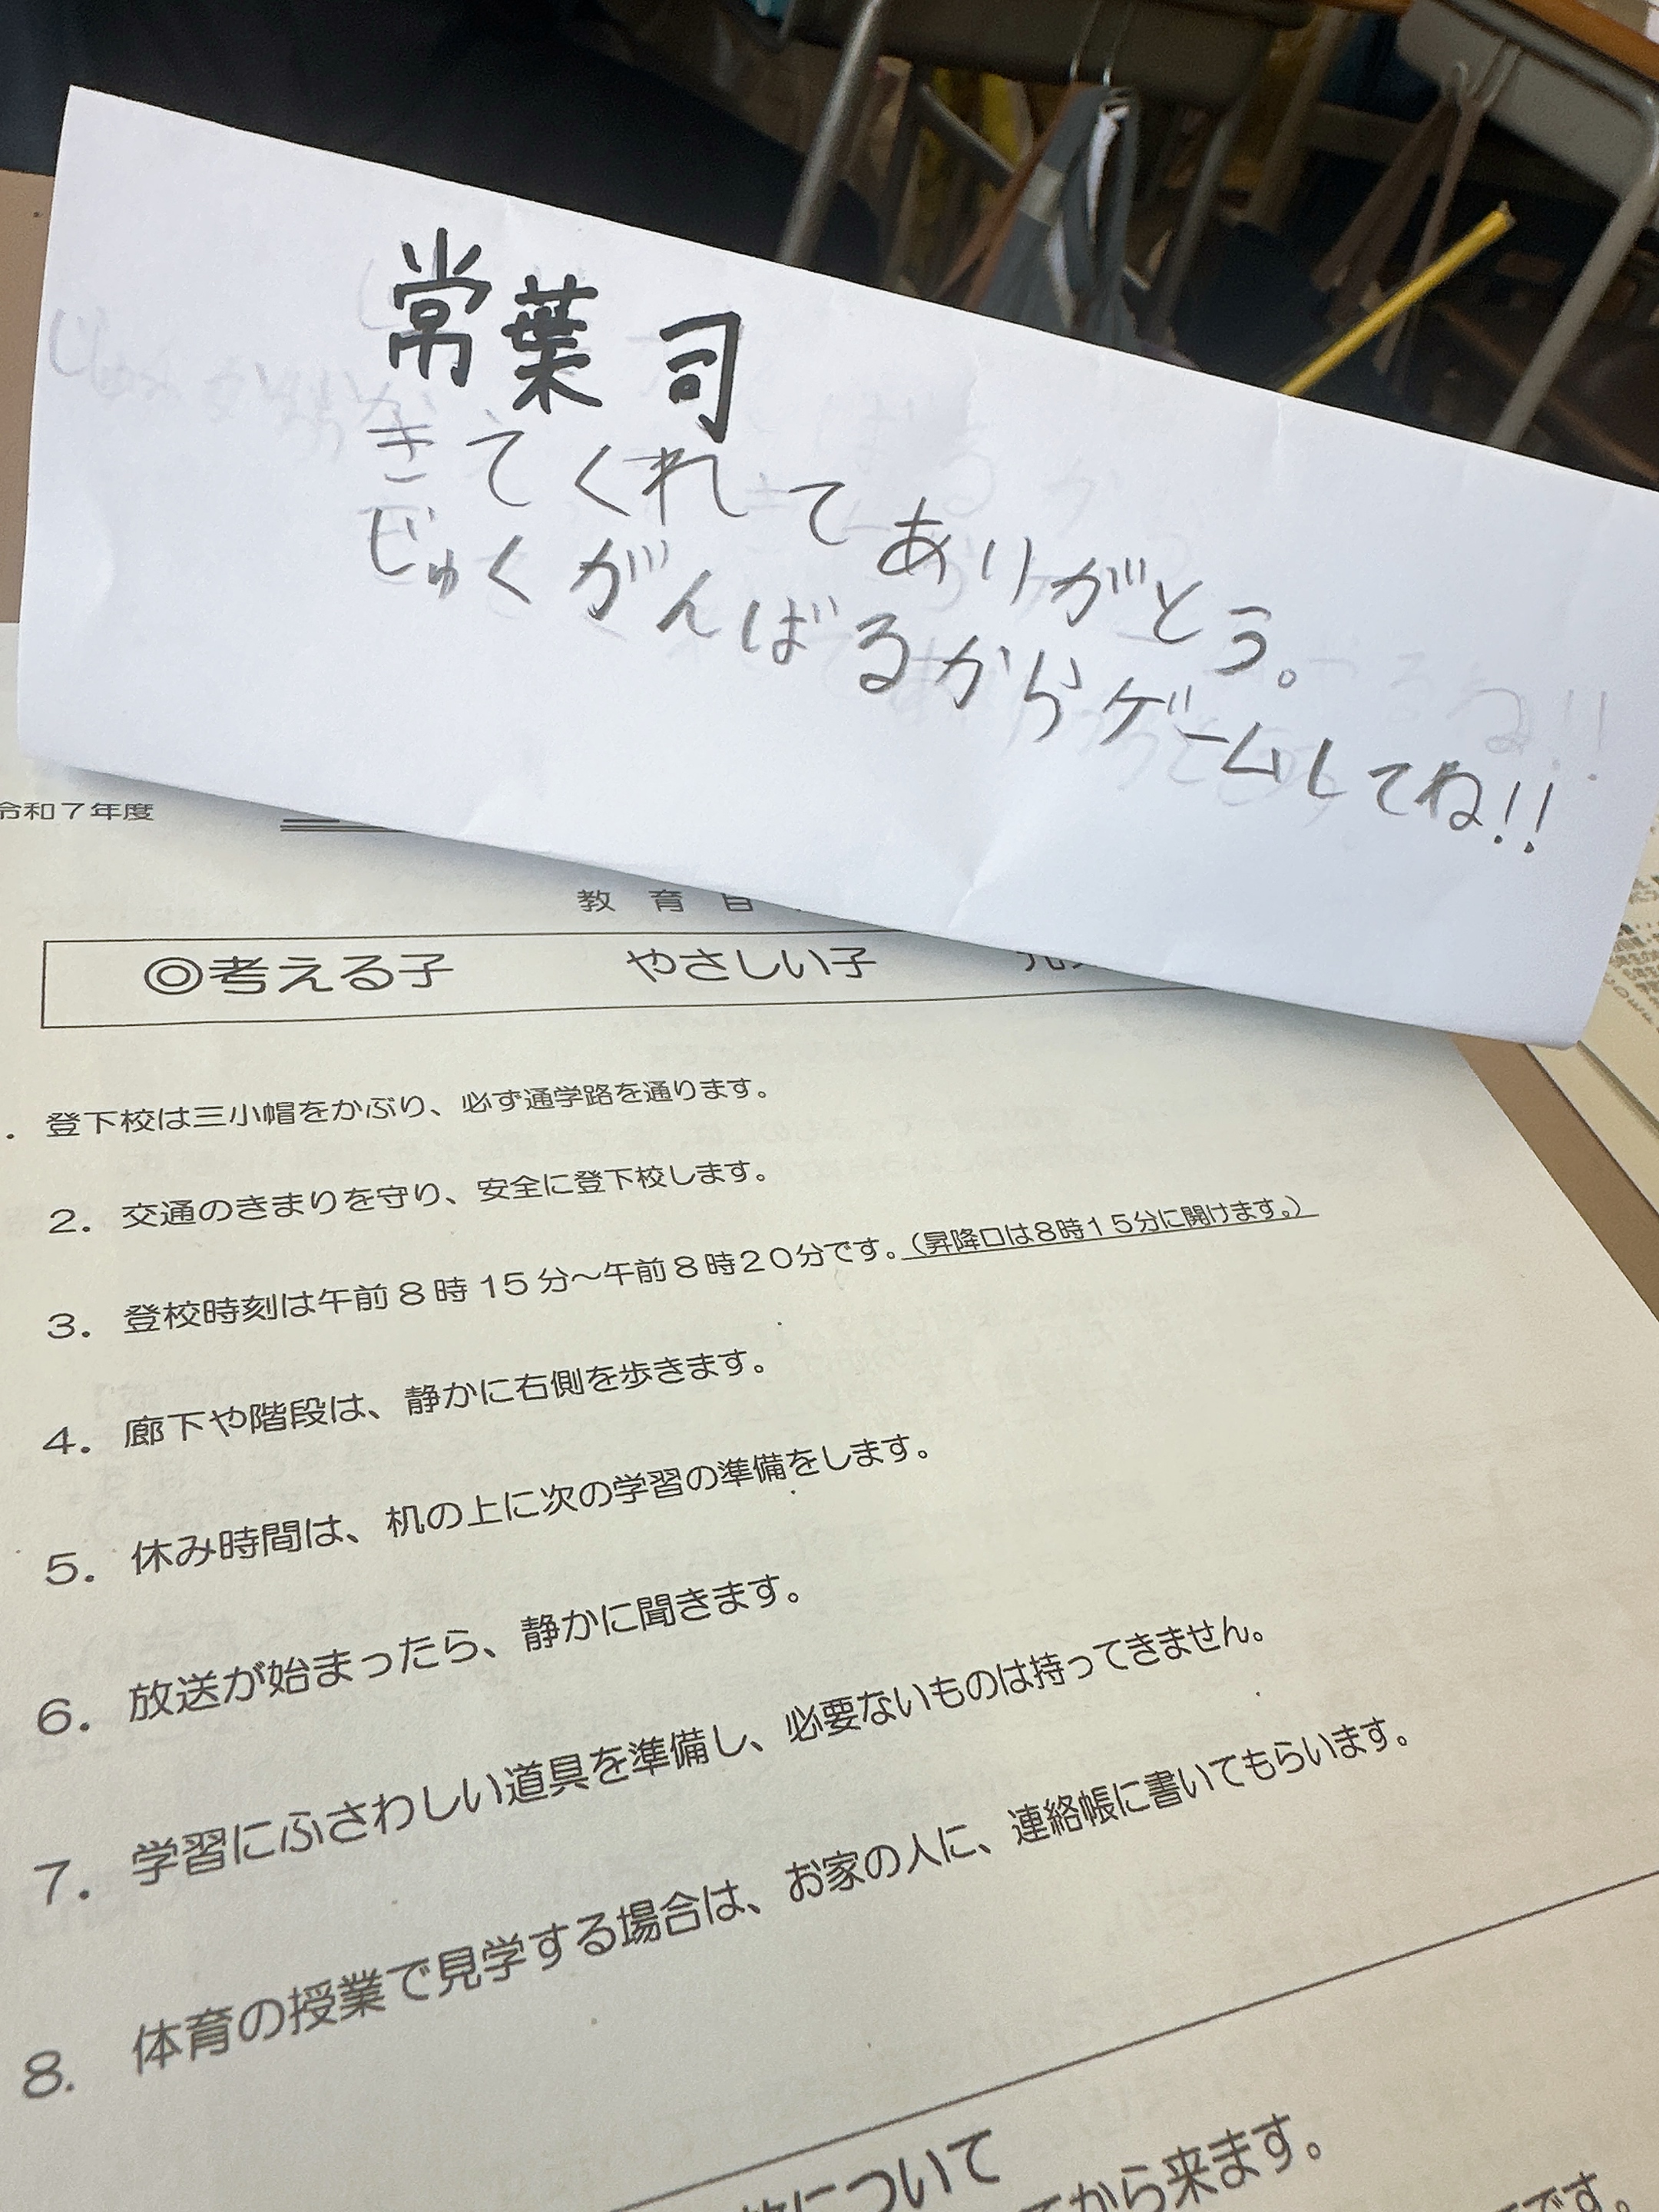 常葉 司
きてくれてありがとう。
じゅくがんばるからゲームしてね!!
令和7年度
教育目
◎考える子 やさしい子
. 登下校は三小帽をかぶり、必ず通学路を通ります。
2. 交通のきまりを守り、安全に登下校します。
3. 登校時刻は午前8時15分~午前8時20分です。(昇降口は8時15分に開けます。)
4. 廊下や階段は、静かに右側を歩きます。
5. 休み時間は、机の上に次の学習の準備をします。
6. 放送が始まったら、静かに聞きます。
7. 学習にふさわしい道具を準備し、必要ないものは持ってきません。
8. 体育の授業で見学する場合は、お家の人に、連絡帳に書いてもらいます。
について
から来ます。
です。